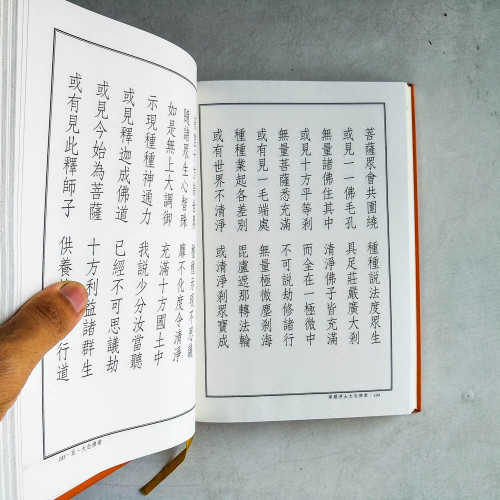 菩薩眾會共圍繞 種種說法度眾生
或見一一佛毛孔 具足莊嚴廣大剎
無量諸佛住其中 清淨佛子皆充滿
或見十方平等剎 而全在一極微中
無量菩薩悉充滿 不可說劫修諸行
或有見一毛端處 無量極微塵剎海
種種業起各差別 毘盧遮那轉法輪
或有世界不清淨 或清淨剎眾寶成
104
種種示現不思議
隨諸眾生心智殊 靡不化度令清淨
如是無上大調御 充滿十方國土中
示現種種神通力 我說少分汝當聽
或見釋迦成佛道 已經不可思議劫
或見今始為菩薩 十方利益諸群生
或有見此釋師子 供養 行道
105